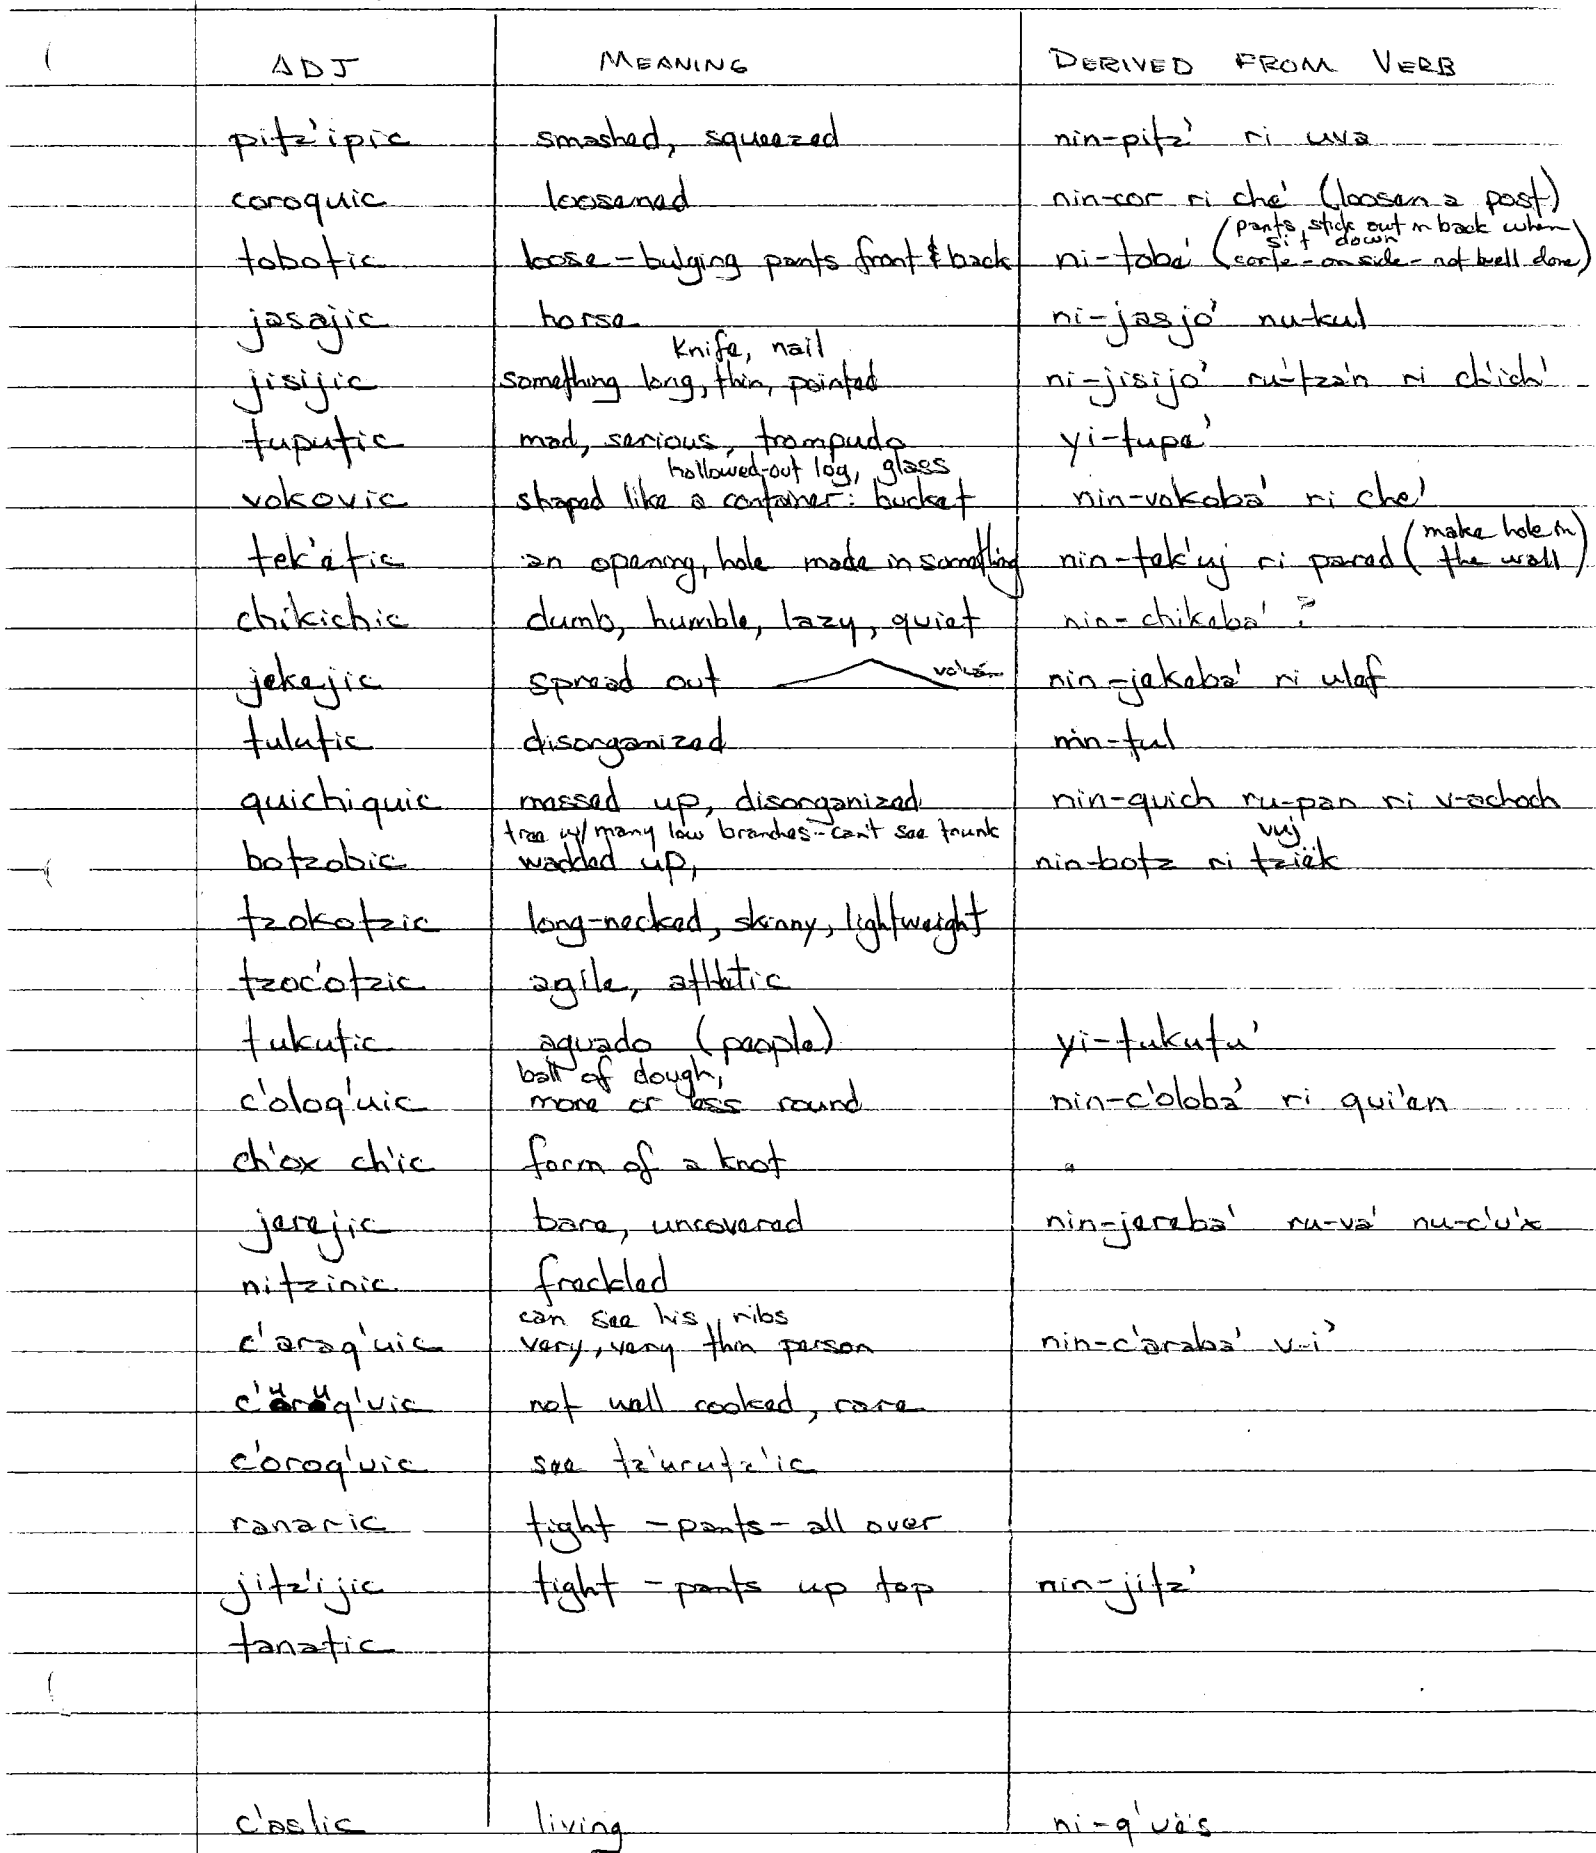 ADJ MEANING DERIVED FROM VERB
pitz'ipic smashed, squeezed nin-pitz' ri uva
coroquic loosened nin-cor ri che' (loosen a post)
tobotic loose-bulging pants front & back ni-toba' (pants stick out in back when sit down corte-on side-not well done)
jasajic horse ni-jasjo' nu-kul
knife, nail
jisijic something long, thin, pointed ni-jisijo' ru-tza'n ri ch'ich'
tuputic mad, serious, trompudo yi-tupe'
hollowed-out log, glass
vokovic shaped like a container: bucket nin-vokoba' ri che'
tek'etic an opening, hole made in something nin-tek'uj ri pared (make hole in the wall)
chikichic dumb, humble, lazy, quiet nin-chikeba' ?
jekejic spread out volcán nin-jekeba' ri ulef
tulutic disorganized nin-tul
quichiquic messed up, disorganized nin-quich ru-pan ri v-achoch
tree w/ many low branches-can't see trunk vuj
botzobic wadded up, nin-botz ri tziëk
tzokotzic long-necked, skinny, lightweight
tzoc'otzic agile, athletic
tukutic aguado (people) yi-tukutu'
ball of dough,
c'oloq'uic more or less round nin-c'oloba' ri qui'en
ch'ox ch'ic form of a knot
jerejic bare, uncovered nin-jereba' ru-va' nu-c'u'x
nitzinic freckled
can see his ribs
c'araq'uic very, very thin person nin-c'araba' v-i'
c'uruq'uic not well cooked, rare
c'oroq'uic see tz'urutz'ic
ranaric tight -pants- all over
jitz'ijic tight -pants up top nin-jitz'
tanatic
c'aslic living ni-q'uës